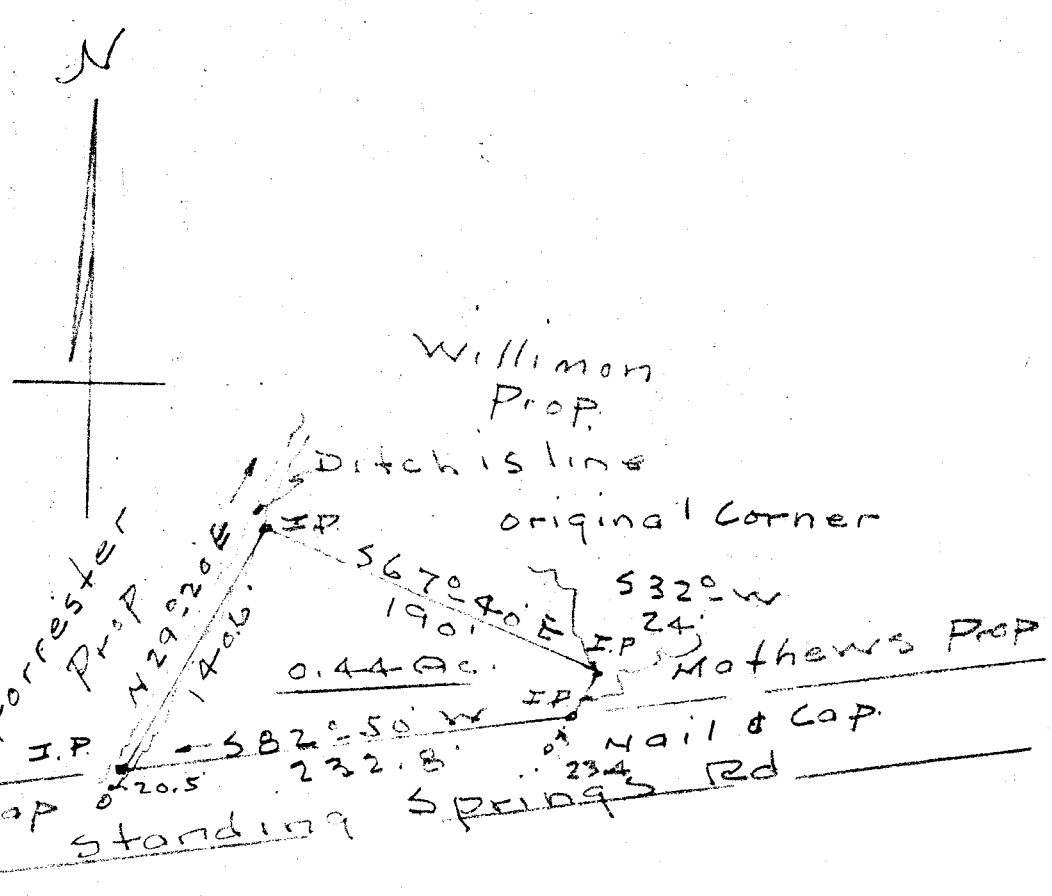 N
Willimon
Prop.
Ditch is line
original Corner
I.P.
N 29°-20' E
140.6'
Prop
S 67°-40' E
190.'
S 32°-W
24'
I.P.
Mathews Prop
0.44 Ac.
I.P.
Nail & Cap.
I.P.
S 82°-50' W
232.8'
20.5'
23.4
Standing Springs Rd